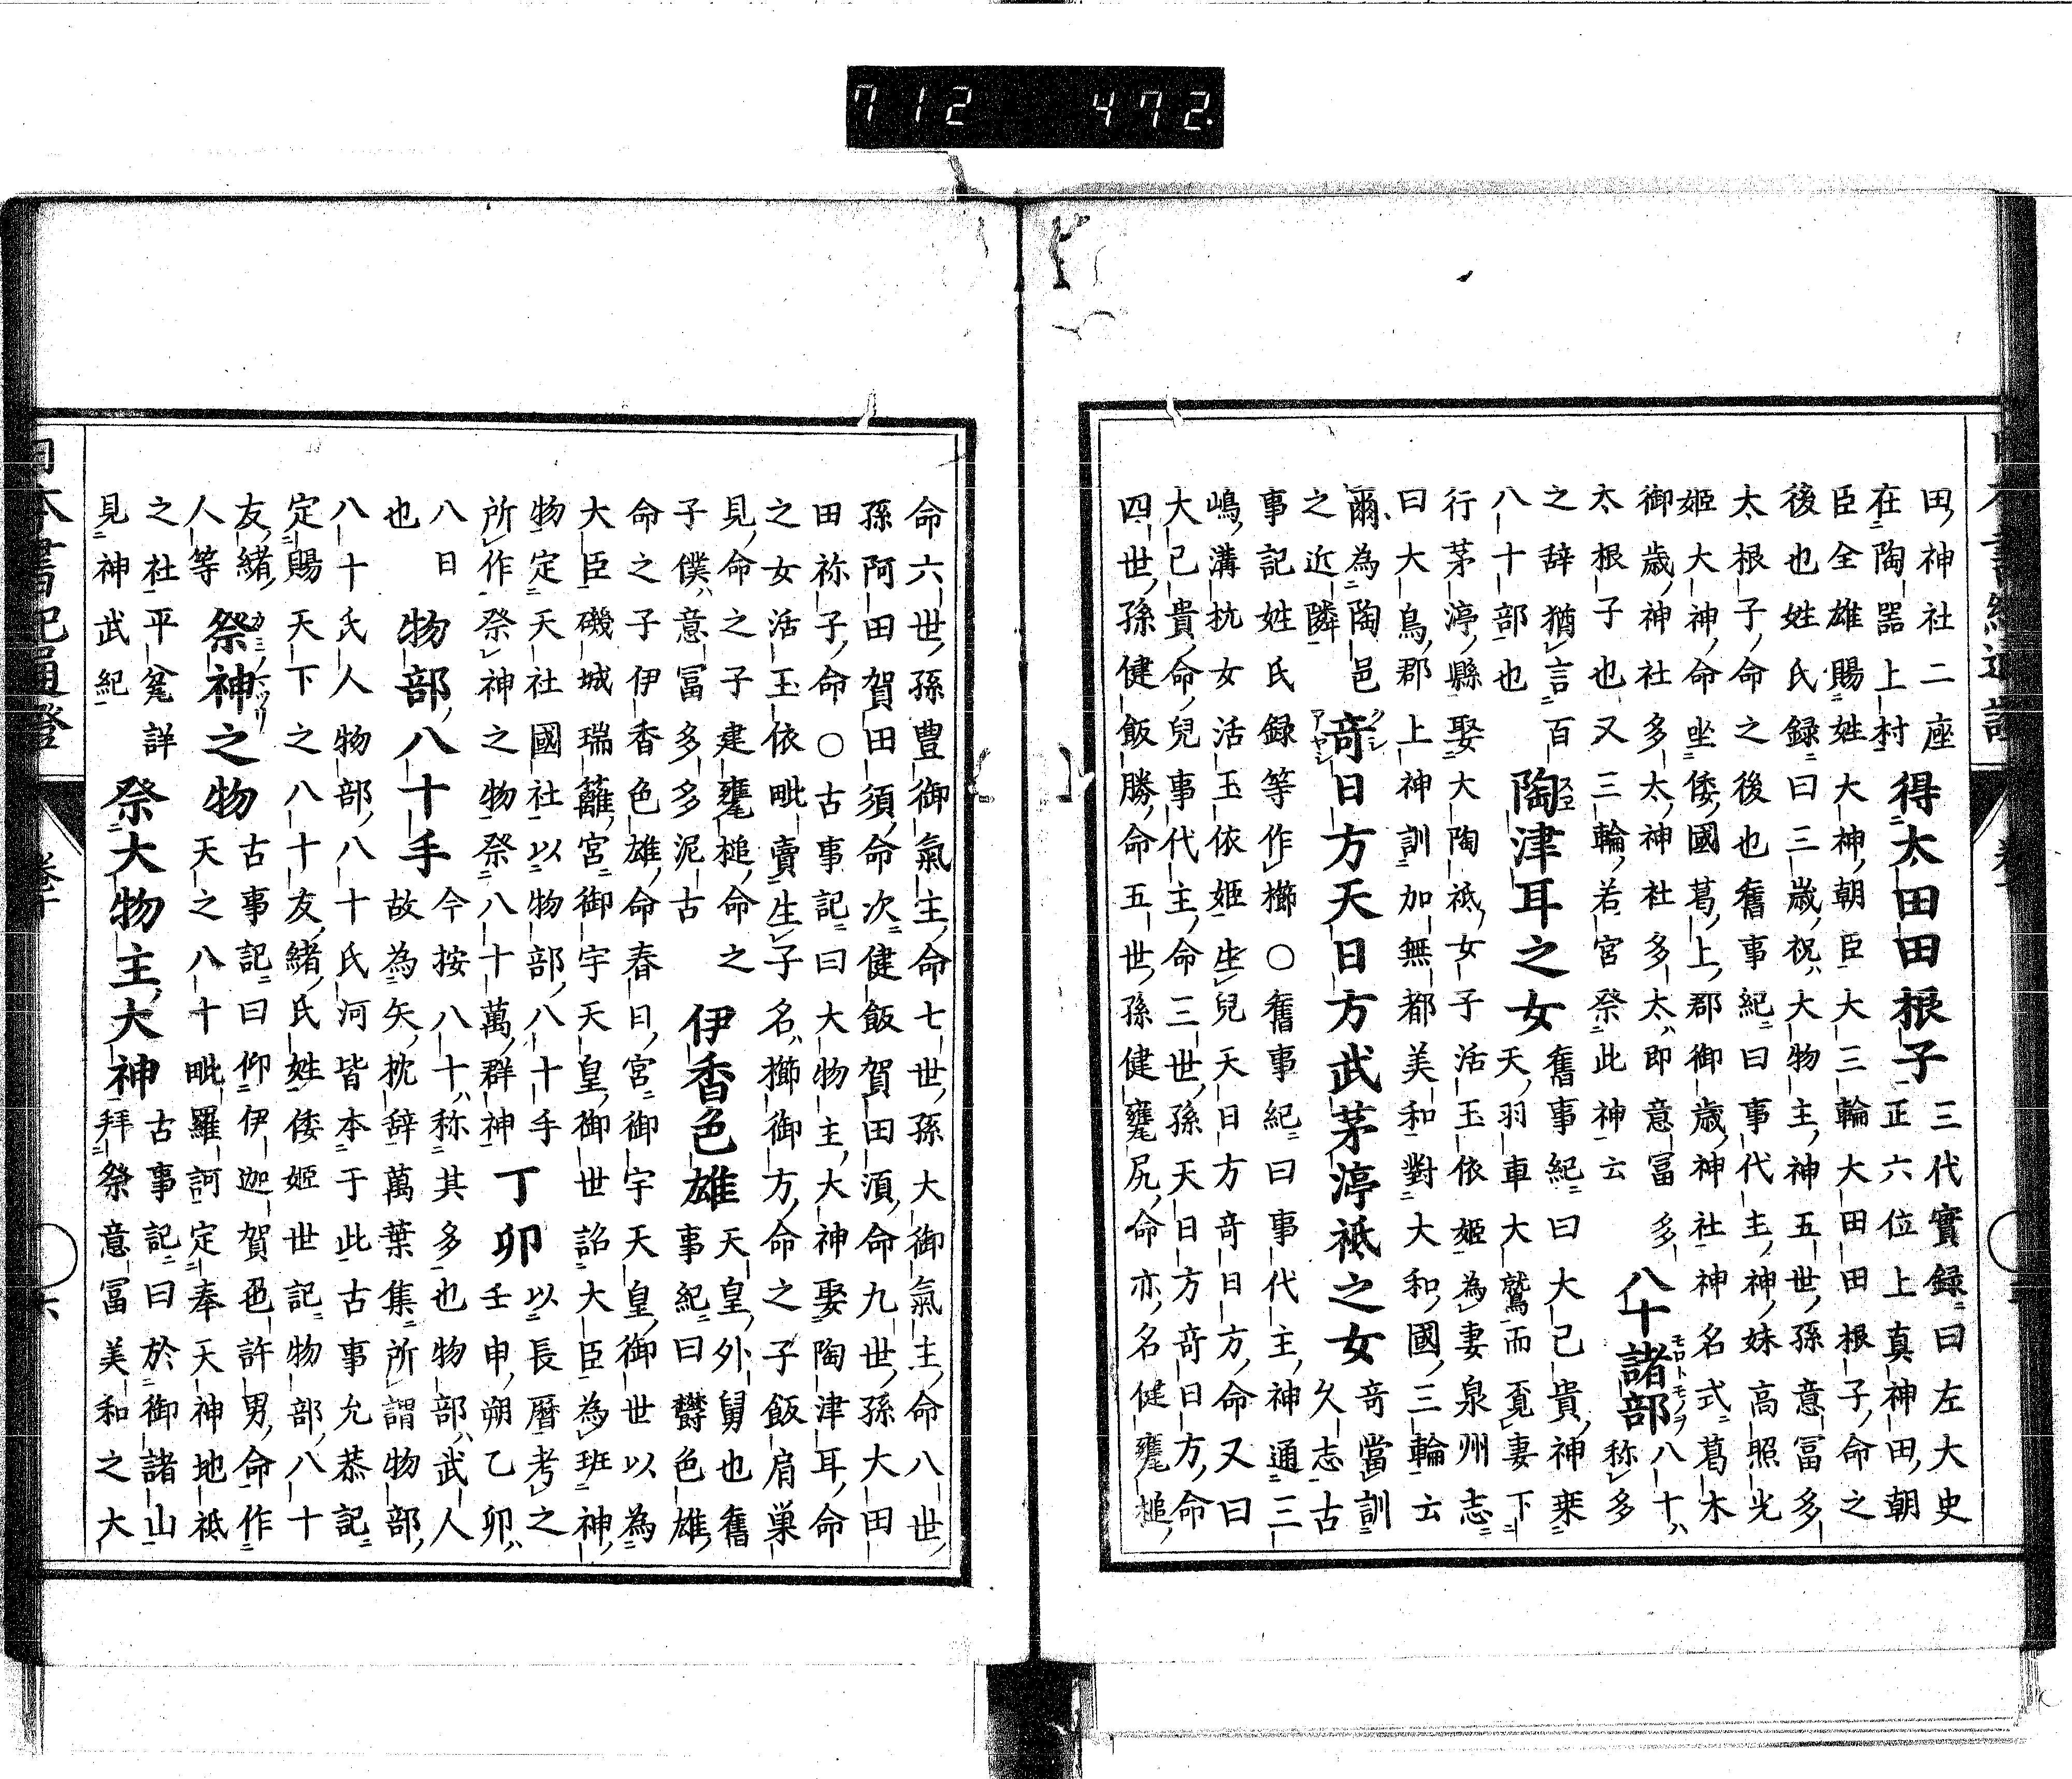 田神社二座
在陶器上村
得太田田根子
三代實録曰左大史
正六位上真神田朝
臣全雄賜姓大神朝臣大三輪大田田根子命之
後也姓氏録曰三歳祝大物主神五世孫意冨多
太根子命之後也舊事紀曰事代主神妹高照光
姫大神命坐倭國葛上郡御歳神社神名式葛木
御歳神社多太神社多太即意冨多
太根子也又三輪若宮祭此神云
八十諸部
モロトモノヲ
八十ハ
称多
之辞猶言百
八十部也
陶津耳之女
舊事紀曰大己貴神乗
天羽車大鷲而覓妻下
行茅渟縣娶大陶祇女子活玉依姫為妻泉州志
曰大鳥郡上神訓加無都美和對大和國三輪云
爾為陶邑
之近隣
奇日方天日方武茅渟祇之女
クシ
アヤシ
奇當訓
久志古
事記姓氏録等作櫛○舊事紀曰事代主神通三
嶋溝杭女活玉依姫生兒天日方奇日方命又曰
大己貴命兒事代主命三世孫天日方奇日方命
四世孫健飯勝命五世孫健甕尻命亦名健甕槌
命六世孫豊御氣主命七世孫大御氣主命八世
孫阿田賀田須命次健飯賀田湏命九世孫大田
田祢子命○古事記曰大物主大神娶陶津耳命
之女活玉依毗賣生子名櫛御方命之子飯肩巣
見命之子建甕槌命之
子僕意冨多多泥古
伊香色雄
天皇外舅也舊
事紀曰欝色雄
命之子伊香色雄命春日宮御宇天皇御世以為
大臣磯城瑞籬宮御宇天皇御世詔大臣為班神
物定天社國社以物部八十手
所作祭神之物祭八十萬群神
丁卯
以長暦考之
壬申朔乙卯ハ
八日
也
物部八十手
今按八十ハ称其多也物部ハ武人
故為矢枕辞萬葉集所謂物部
八十氏人物部八十氏河皆本于此古事允恭記
定賜天下之八十友緒氏姓倭姫世記物部八十
友緒
人等
祭神之物
カミノマツリ
古事記曰仰伊迦賀色許男命作
天之八十毗羅訶定奉天神地祇
之社平瓫詳
見神武紀
祭大物主大神
古事記曰於御諸山
拜祭意冨美和之大